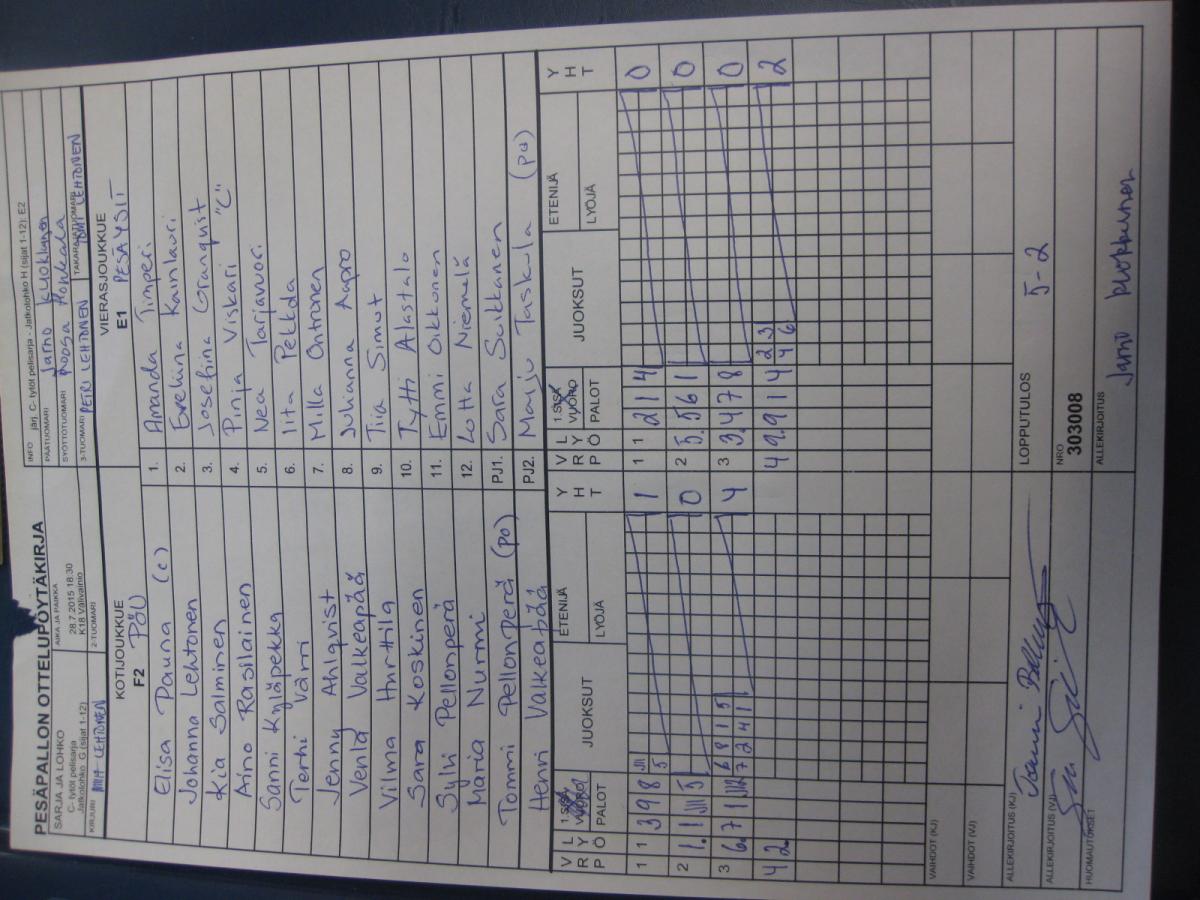 PESÄPALLON OTTELUPÖYTÄKIRJA
SARJA JA LOHKO
C- tytöt pelisarja
Jatkolohko: G (sijat 1-12)
AIKA JA PAIKKA
28.7.2015 18:30
K18 Välivainio
INFO järj. C- tytöt pelisarja - Jatkolohko H (sijat 1-12): E2
PÄÄTUOMARI Jarno Kuokkunen
SYÖTTÖTUOMARI Roosa Honkala
KIRJURI LEHTONEN
2-TUOMARI
3-TUOMARI PETRI LEHTONEN
TAKARAJATUOMARI TOMI LEHTONEN
KOTIJOUKKUE
F2 PÖU
VIERASJOUKKUE
E1 PESÄYSIT
Elisa Pauna (c) 1. Amanda Timperi
Johanna Lehtonen 2. Eveliina Kainlauri
Kia Salminen 3. Josefina Granquist
Aino Rasilainen 4. Pinja Viskari "C"
Sanni Kyläpekka 5. Nea Tarjavuori
Terhi Värri 6. Iita Pekkola
Jenny Ahlqvist 7. Milla Ontronen
Venla Valkeapää 8. Juhanna Aapro
Vilma Hurttila 9. Tiia Simut
Sara Koskinen 10. Tytti Alastalo
Sylvi Pellonperä 11. Emmi Oikkonen
Maria Nurmi 12. Lotta Niemelä
Tommi Pellonperä (po) PJ1. Sara Suikkanen
Henri Valkeapää PJ2. Marju Taskula (po)
VRP LYÖ 1.SISÄVUORO PALOT JUOKSUT ETENIJÄ LYÖJÄ YHT
VRP LYÖ 1.SISÄVUORO PALOT JUOKSUT ETENIJÄ LYÖJÄ YHT
1 1 3 9 8 5 1
1 1 2 1 4 0
2 1. 1 5 0
2 5. 5 6 1 0
3 6 7 1 6 8 1 5 4
7 2 4 1
3 3. 4 7 8 0
4 2
4 9. 9 1 4 2 3 2
4 6
VAIHDOT (KJ)
VAIHDOT (VJ)
ALLEKIRJOITUS (KJ)
LOPPUTULOS 5-2
ALLEKIRJOITUS (VJ)
NRO
303008
HUOMAUTUKSET
ALLEKIRJOITUS